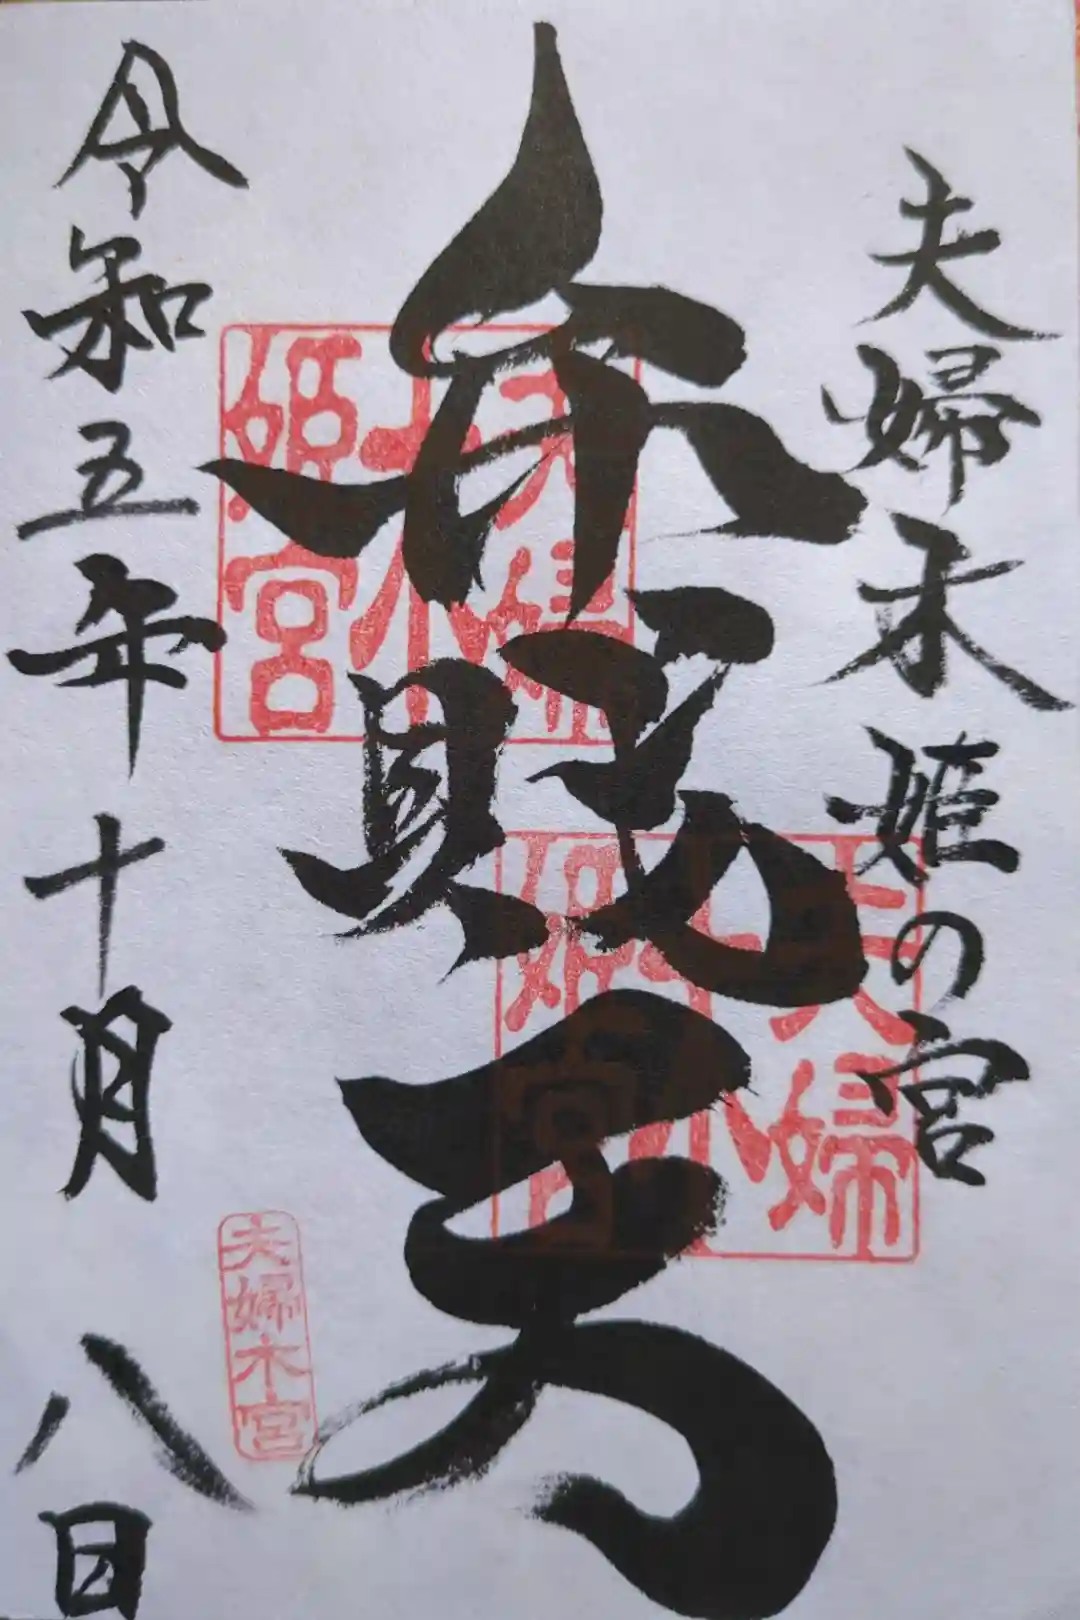 夫婦木姫の宮
辨財天
令和五年十月八日
夫婦木姫宮
夫婦木姫宮
夫婦木宮